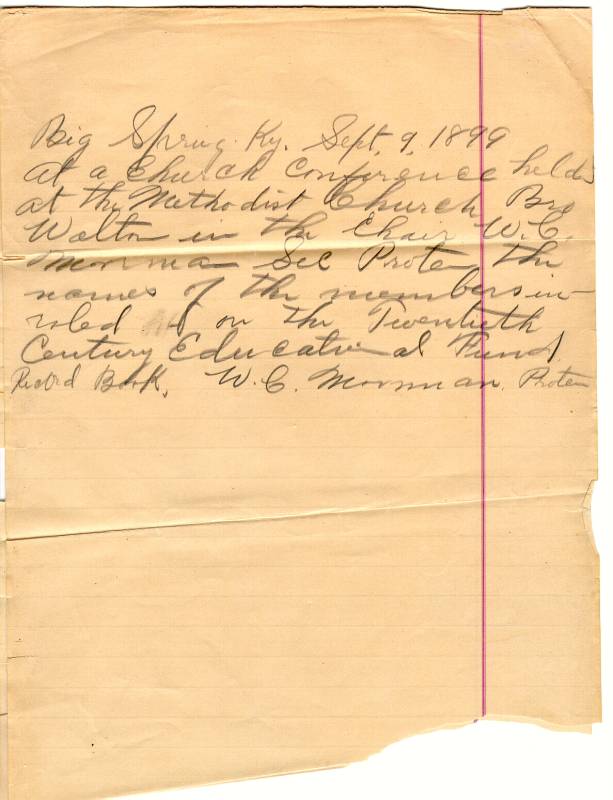 Big Spring Ky. Sept, 9, 1899
at a Church Conference held
at the Methodist Church Bro
Walton in the Chair W. C.
Moorman Sec Protem the
names of the members in-
roled on the Twentieth
Century Educational Fund
Record Book, W. C. Moorman, Protem